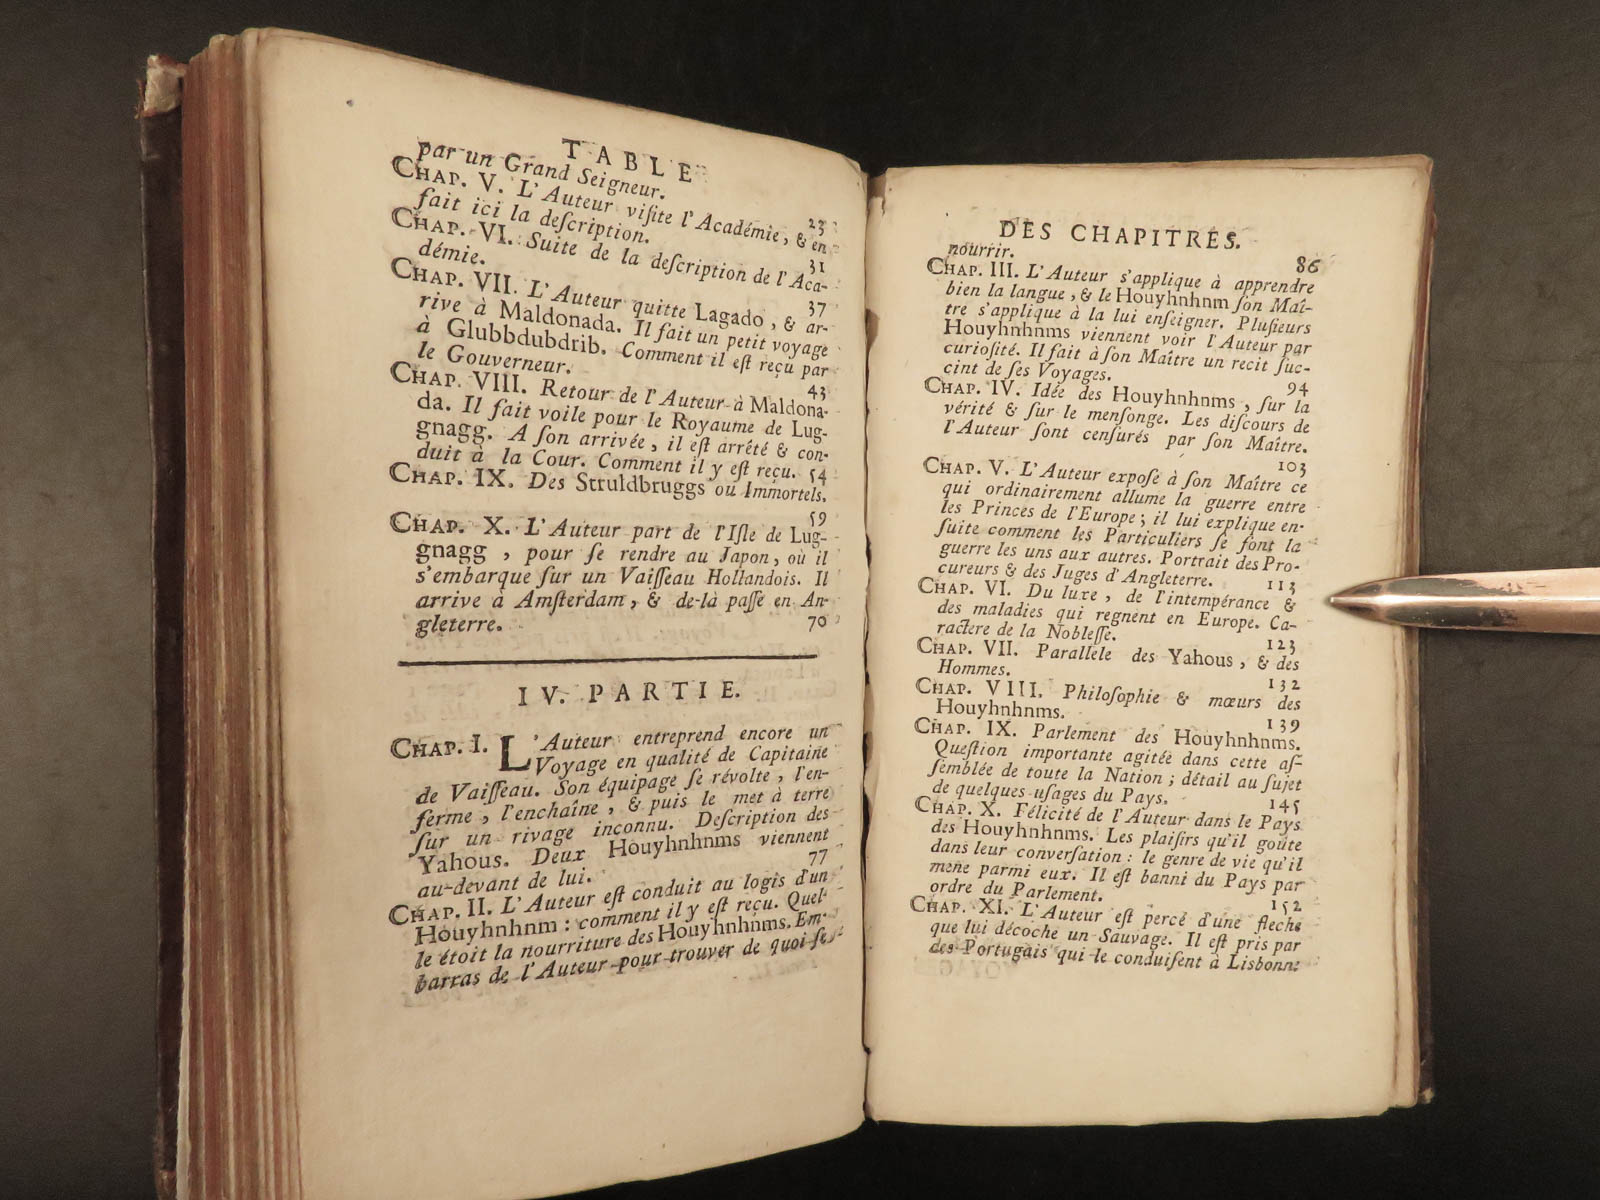 TABLE
par un Grand Seigneur. 23
CHAP. V. L'Auteur viſite l'Académie, & en
fait ici la deſcription. 31
CHAP. VI. Suite de la deſcription de l'Aca-
démie. 37
CHAP. VII. L'Auteur quitte Lagado, & ar-
rive à Maldonada. Il fait un petit voyage
à Glubbdubdrib. Comment il eſt reçu par
le Gouverneur. 43
CHAP. VIII. Retour de l'Auteur à Maldona-
da. Il fait voile pour le Royaume de Lug-
gnagg. A ſon arrivée, il eſt arrêté & con-
duit à la Cour. Comment il y eſt reçu. 54
CHAP. IX. Des Struldbruggs ou Immortels.
59
CHAP. X. L'Auteur part de l'Iſle de Lug-
gnagg, pour ſe rendre au Japon, où il
s'embarque ſur un Vaiſſeau Hollandois. Il
arrive à Amſterdam, & de-là paſſe en An-
gleterre. 70
IV. PARTIE.
CHAP. I. L'Auteur entreprend encore un
Voyage en qualité de Capitaine
de Vaiſſeau. Son équipage ſe révolte, l'en-
ferme, l'enchaîne, & puis le met à terre
ſur un rivage inconnu. Deſcription des
Yahous. Deux Houyhnhnms viennent
au-devant de lui. 77
CHAP. II. L'Auteur eſt conduit au logis d'un
Houyhnhnm: comment il y eſt reçu. Quel-
le étoit la nourriture des Houyhnhnms. Em-
barras de l'Auteur pour trouver de quoi ſe
DES CHAPITRES.
nourrir. 86
CHAP. III. L'Auteur s'applique à apprendre
bien la langue, & le Houyhnhnm ſon Maî-
tre s'applique à la lui enſeigner. Pluſieurs
Houyhnhnms viennent voir l'Auteur par
curioſité. Il fait à ſon Maître un recit ſuc-
cint de ſes Voyages. 94
CHAP. IV. Idée des Houyhnhnms, ſur la
vérité & ſur le menſonge. Les diſcours de
l'Auteur ſont cenſurés par ſon Maître.
103
CHAP. V. L'Auteur expoſe à ſon Maître ce
qui ordinairement allume la guerre entre
les Princes de l'Europe; il lui explique en-
ſuite comment les Particuliers ſe font la
guerre les uns aux autres. Portrait des Pro-
cureurs & des Juges d'Angleterre. 113
CHAP. VI. Du luxe, de l'intempérance &
des maladies qui regnent en Europe. Ca-
ractere de la Nobleſſe. 123
CHAP. VII. Parallele des Yahous, & des
Hommes. 132
CHAP. VIII. Philoſophie & mœurs des
Houyhnhnms. 139
CHAP. IX. Parlement des Houyhnhnms.
Queſtion importante agitée dans cette aſ-
ſemblée de toute la Nation; détail au ſujet
de quelques uſages du Pays. 145
CHAP. X. Félicité de l'Auteur dans le Pays
des Houyhnhnms. Les plaiſirs qu'il goûte
dans leur converſation: le genre de vie qu'il
mene parmi eux. Il eſt banni du Pays par
ordre du Parlement. 152
CHAP. XI. L'Auteur eſt percé d'une fleche
que lui décoche un Sauvage. Il eſt pris par
des Portugais qui le conduiſent à Lisbonne